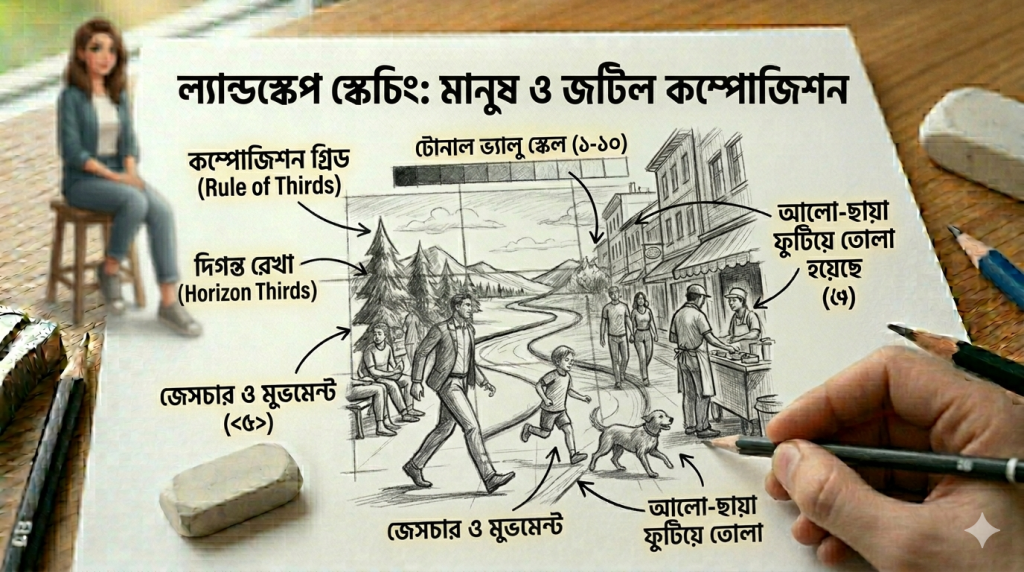 ল্যান্ডস্কেপ স্কেচিং: মানুষ ও জটিল কম্পোজিশন
কম্পোজিশন গ্রিড
(Rule of Thirds)
টোনাল ভ্যালু স্কেল (১-১০)
আলো-ছায়া
ফুটিয়ে তোলা
হয়েছে
দিগন্ত রেখা
(Horizon Thirds)
জেসচার ও মুভমেন্ট
(<৫>)
জেসচার ও মুভমেন্ট
আলো-ছায়া
ফুটিয়ে তোলা